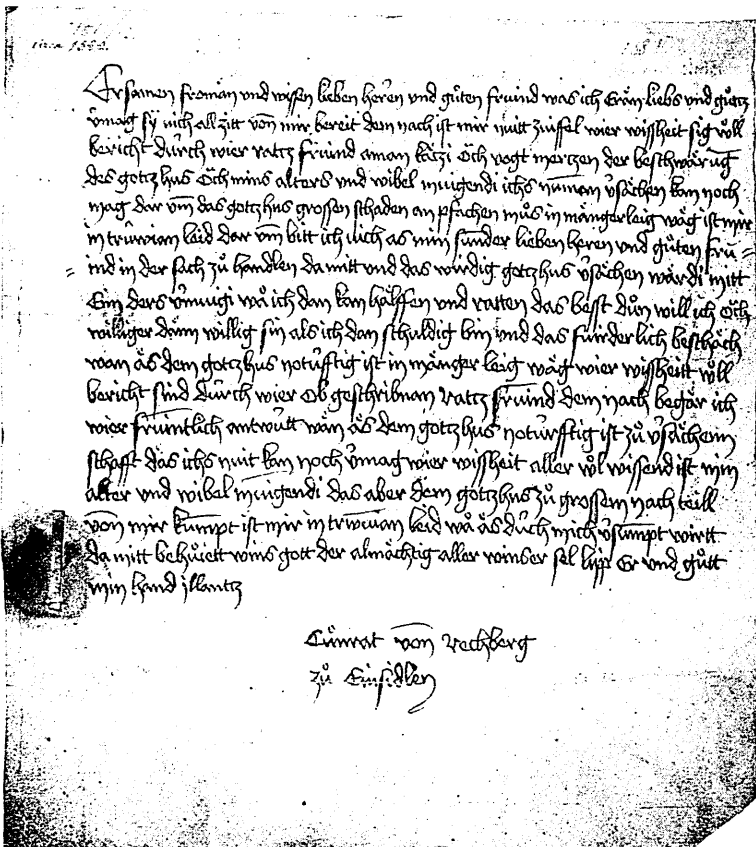 circa 1522.
Ersamen froman und wissen lieben heren und gůten fruind was ich Eran liebs und gůtz
vmag sy uich all zitt von mir bereit dem nach ist mir nuitt zwifel wier wissheit sig wŏll
bericht durch wier ratz fruind aman kătzi ŏch vogt mertzen der beschwărug
des gotzhus ŏch mins alters und vibel muigendi ichs numan vsăchen kan noch
mag dar vm das gotzhus grossen schaden an pfăchen mů̊s in mangerleig wăg ist mir
in truwian leid dar vm bitt ich uich as min sunder lieben heren und gůten fru=
=ind in der sach zů handlen damitt und das wirdig gotzhus vsăchen wărdi mitt
Ein ders vmugi wă ich dan kan hălffen und ratten das best důn will ich ŏch
williger dann willig sin als ich dan schuldig bin und das fuirderlich beschăch
wan ăs dem gotzhus noturfftig ist in mănger leig wăg wier wissheitt wŏll
bericht sind durch wier ob geschribnan ratz fruind dem nach begăr ich
wier fruintlich antwurtt wan ăs dem gotzhus noturfftig ist zů vsăchenn
schafft das ichs nuit kan noch vmag wier wissheit aller wŏl wissend ist min
alter und vibel muigendi das aber dem gotzhus zů grossem nach teill
von mir kumpt ist mir in truwian leid wă ăs durch mich vsumpt wirtt
da mitt behuiett wins gott der almăchtig aller winser sel lipp Er und gůtt
min hand illantz
Cůnrat von Rechberg
zů Einsidlen